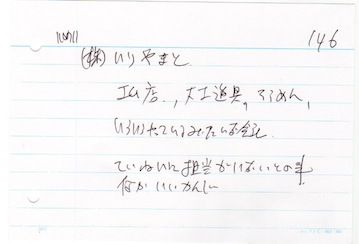 146
(株)いりやまと
工ム店、大工道具、そうめん、
いろいろやっているみたいな会社
ていねいに担当がいないとの事
何かいいかんじ